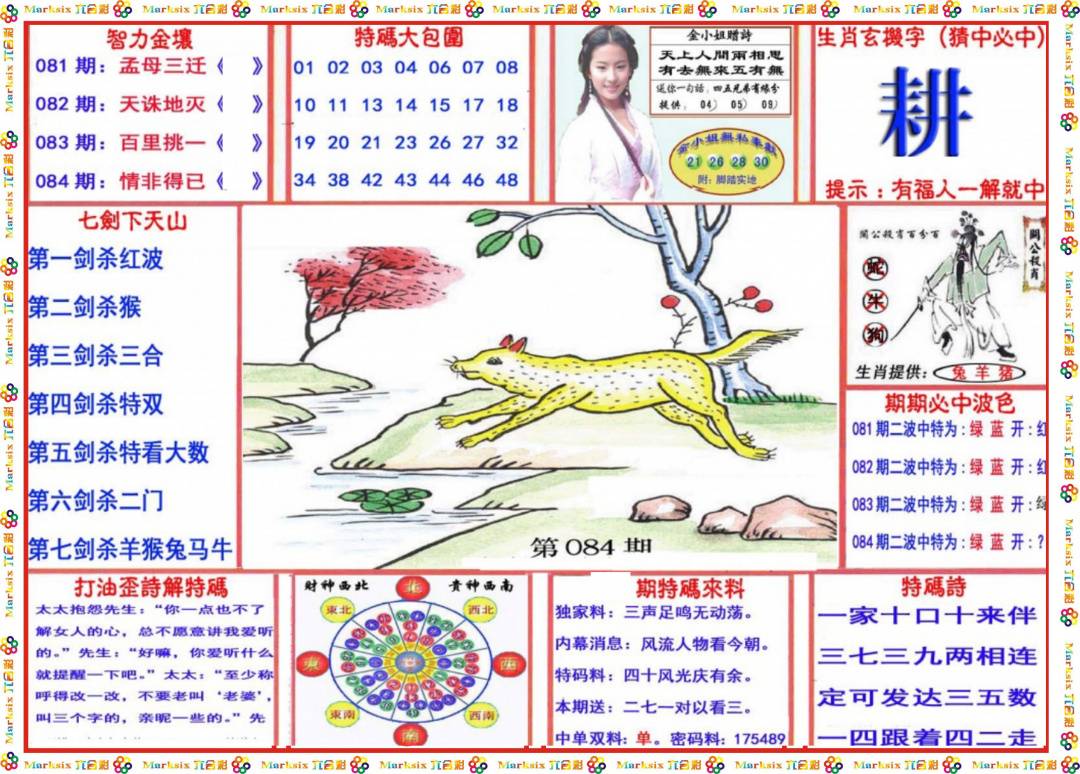 Marksix 六合彩
智力金壤
081 期：孟母三迁《 》
082 期：天诛地灭《 》
083 期：百里挑一《 》
084 期：情非得已《 》
特碼大包圍
01 02 03 04 06 07 08
10 11 13 14 15 17 18
19 20 21 23 26 27 32
34 38 42 43 44 46 48
金小姐赠詩
天上人間兩相思
有去無來五有無
送你一句話：四五兄弟有缘分
提供：04） 05） 09）
金小姐無私奉獻
21 26 28 30
附：脚踏实地
生肖玄機字（猜中必中）
耕
提示：有福人一解就中
七劍下天山
第一剑杀红波
第二剑杀猴
第三剑杀三合
第四剑杀特双
第五剑杀特看大数
第六剑杀二门
第七剑杀羊猴兔马牛
第 084 期
關公殺肖百分百
關公殺肖
蛇
牛
狗
生肖提供：兔 羊 猪
期期必中波色
081 期二波中特为：绿 蓝 开：红
082 期二波中特为：绿 蓝 开：红
083 期二波中特为：绿 蓝 开：绿
084 期二波中特为：绿 蓝 开：？
打油歪詩解特碼
太太抱怨先生：“你一点也不了
解女人的心，总不愿意讲我爱听
的。”先生：“好嘛，你爱听什么
就提醒一下吧。”太太：“至少称
呼得改一改，不要老叫‘老婆’，
叫三个字的，亲昵一些的。”先
財神西北 贵神西南
北
東北 西北
東 西
東南 西南
南
期特碼來料
独家料：三声足鸣无动荡。
内幕消息：风流人物看今朝。
特码料：四十风光庆有余。
本期送：二七一对以看三。
中单双料：单。密码料：175489
特碼詩
一家十口十来伴
三七三九两相连
定可发达三五数
一四跟着四二走